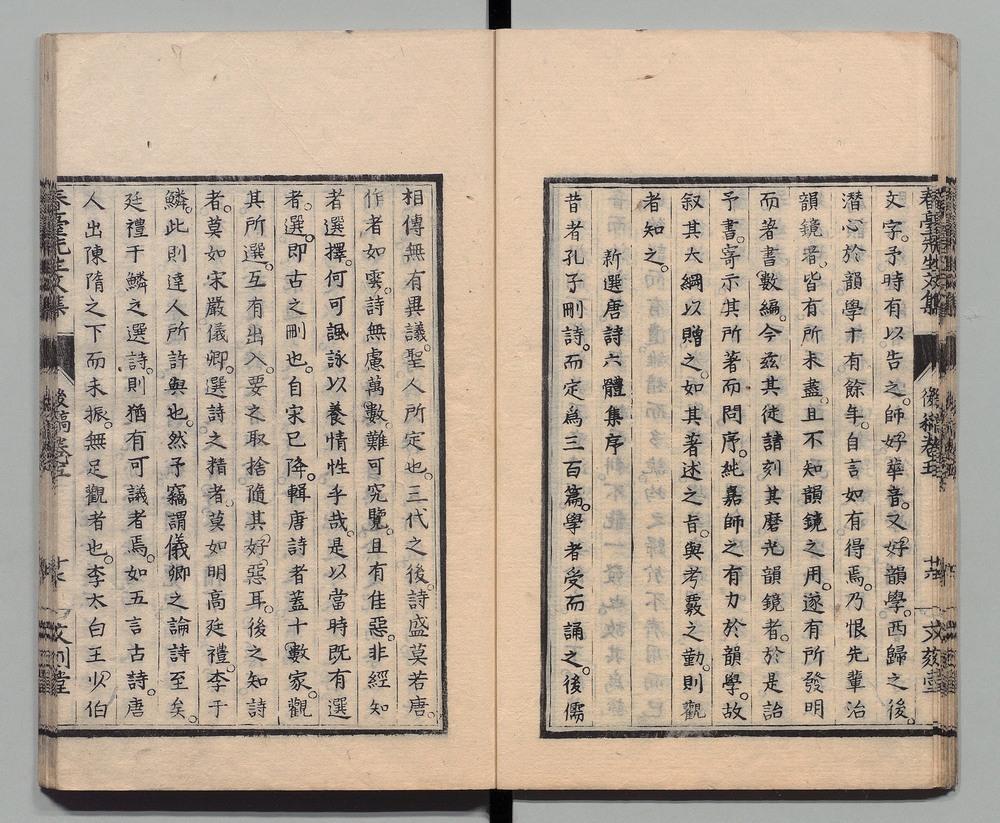 文字。予時有以告之。師好華音。又好韻學。西歸之後。
潛心於韻學十有餘年。自言如有得焉。乃恨先輩治
韻鏡者。皆有所未盡。且不知韻鏡之用。遂有所發明
而著書數編。今茲其徒諸刻其磨光韻鏡者。於是詒
予書。寄示其所著而問序。純嘉師之有力於韻學。故
叙其大綱以贈之。如其著述之旨。與考覈之勤。則觀
者知之。
新選唐詩六體集序
昔者孔子刪詩。而定爲三百篇。學者受而誦之。後儒
相傳無有異議。聖人所定也。三代之後。詩盛莫若唐。
作者如雲。詩無慮萬數。難可究覽。且有佳惡。非經知
者選擇。何可諷詠以養情性乎哉。是以當時既有選
者。選即古之刪也。自宋已降。輯唐詩者蓋十數家。觀
其所選。互有出入。要之取捨隨其好惡耳。後之知詩
者。莫如宋嚴儀卿。選詩之精者。莫如明高廷禮。李于
鱗。此則達人所許與也。然予竊謂儀卿之論詩至矣。
廷禮于鱗之選詩。則猶有可議者焉。如五言古詩。唐
人出陳隋之下而未振。無足觀者也。李太白王少伯
春臺先生文集
後稿卷五
春臺先生文集
後稿卷五